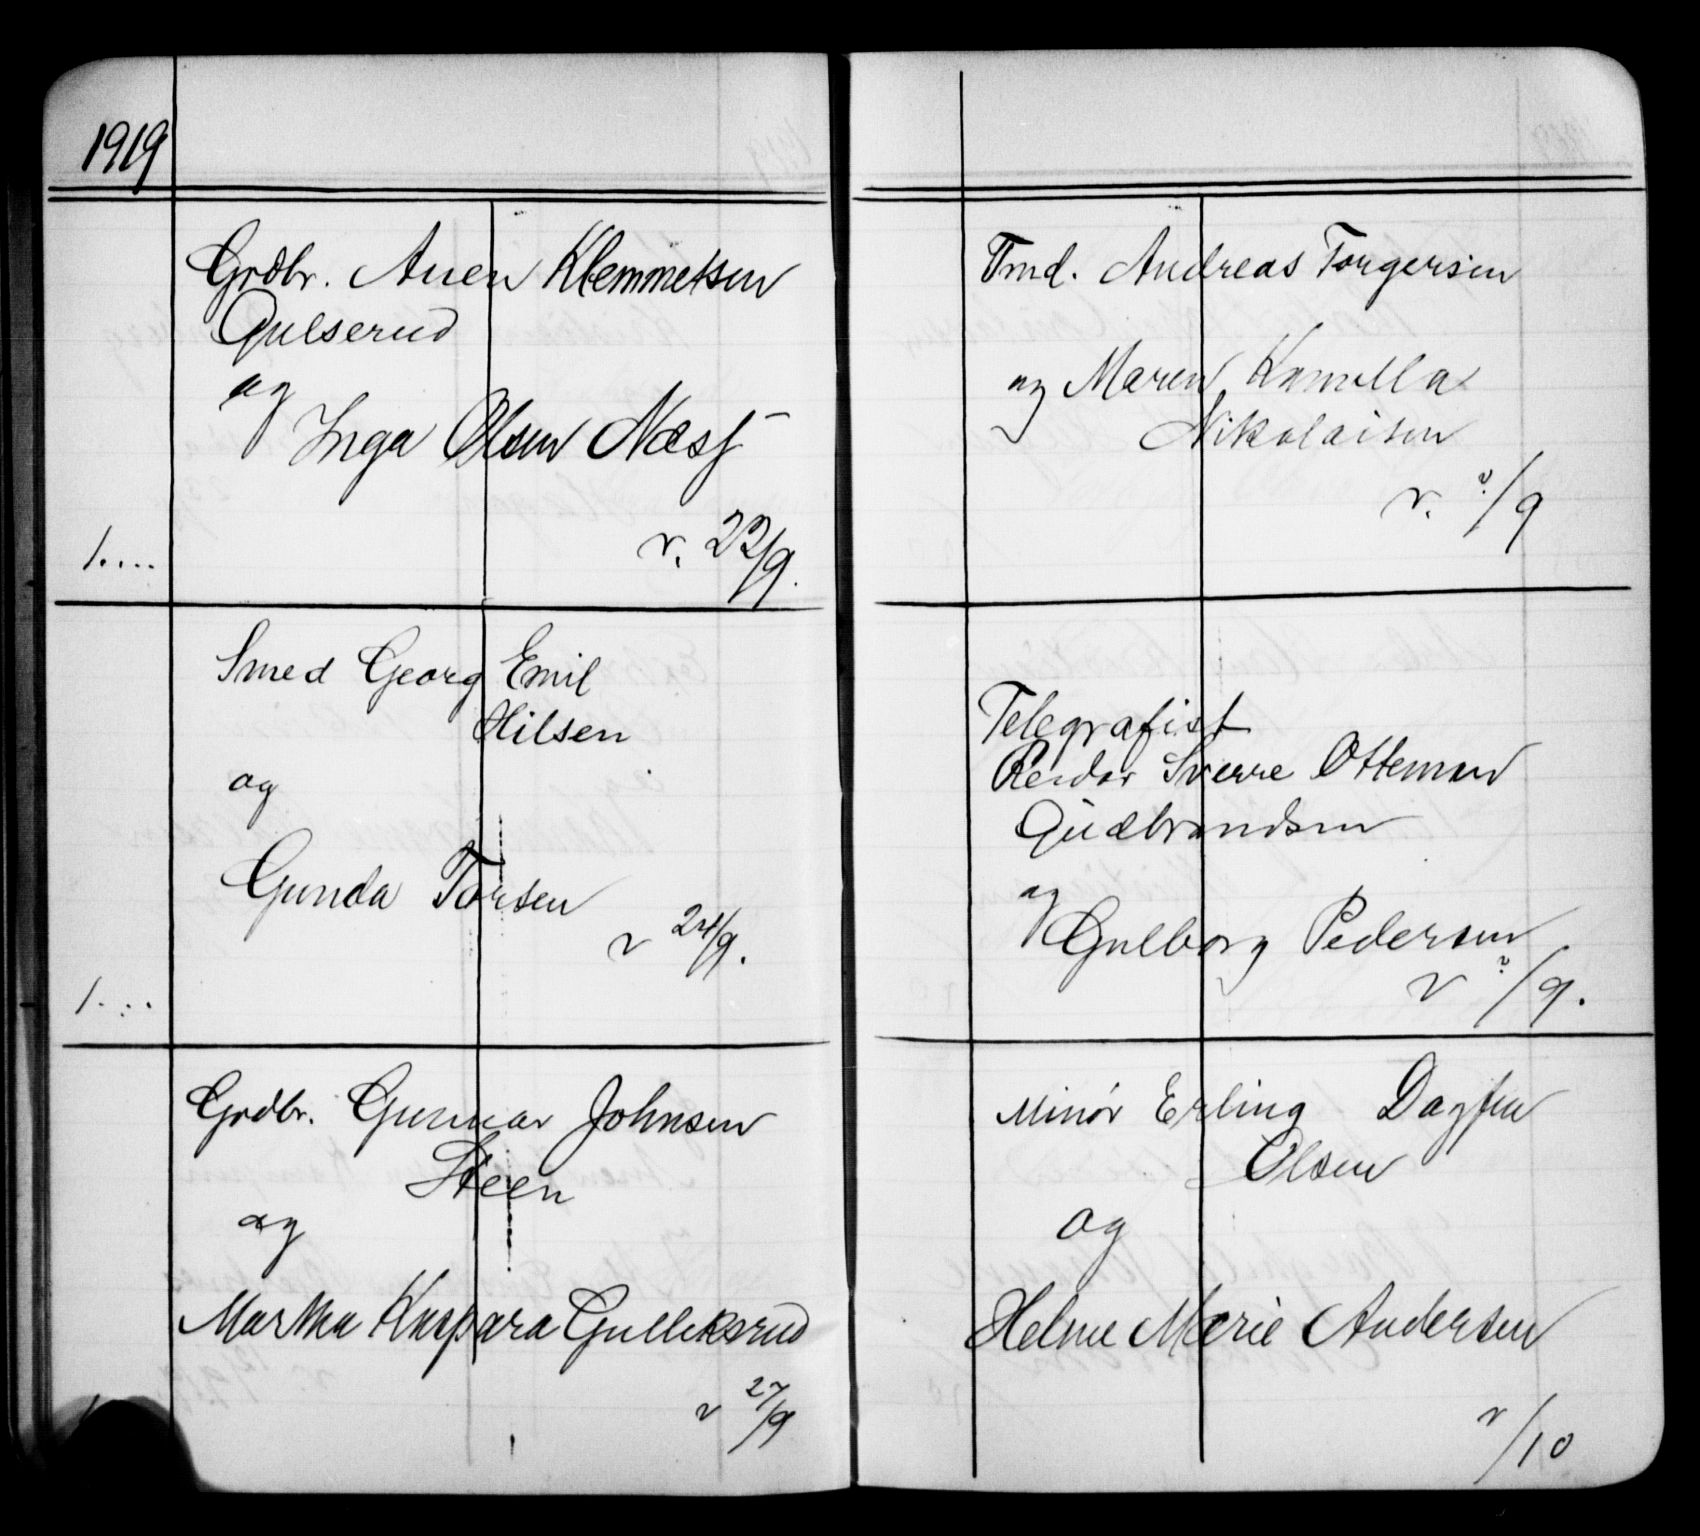 1919
Grdbr. Auen Klemmetsen
Gulserud
og
Inga Olsen Næss
v. 22/9.
1....
Smed Georg Emil
Hilsen
og
Gunda Torsen
v 24/9.
1....
Grdbr. Gunnar Johnsen
Steen
og
Martha Kaspara Gulliksrud
v 27/9
Tmd. Andreas Torgersen
og Maren Kamilla
Nikolaisen
v. ?/9
Telegrafist
Reidar Sverre Otteman
Gudbrandsen
og
Gulborg Pedersen
v ?/9.
Minör Erling Dagfin
Olsen
og
Helene Marie Andersen
v/10